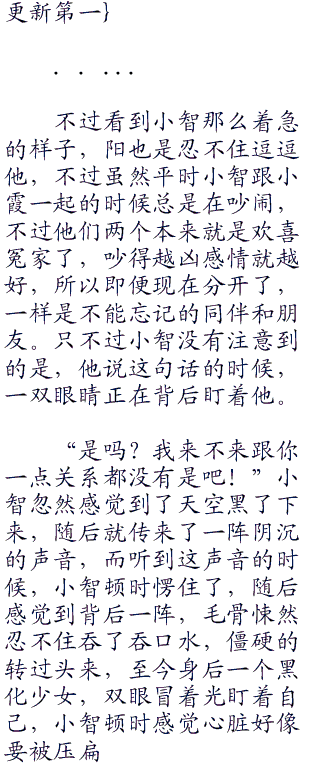 更新第一}
. . ...
不过看到小智那么着急
的样子，阳也是忍不住逗逗
他，不过虽然平时小智跟小
霞一起的时候总是在吵闹，
不过他们两个本来就是欢喜
冤家了，吵得越凶感情就越
好，所以即便现在分开了，
一样是不能忘记的同伴和朋
友。只不过小智没有注意到
的是，他说这句话的时候，
一双眼睛正在背后盯着他。
“是吗？我来不来跟你
一点关系都没有是吧！”小
智忽然感觉到了天空黑了下
来，随后就传来了一阵阴沉
的声音，而听到这声音的时
候，小智顿时愣住了，随后
感觉到背后一阵，毛骨悚然
忍不住吞了吞口水，僵硬的
转过头来，至今身后一个黑
化少女，双眼冒着光盯着自
己，小智顿时感觉心脏好像
要被压扁